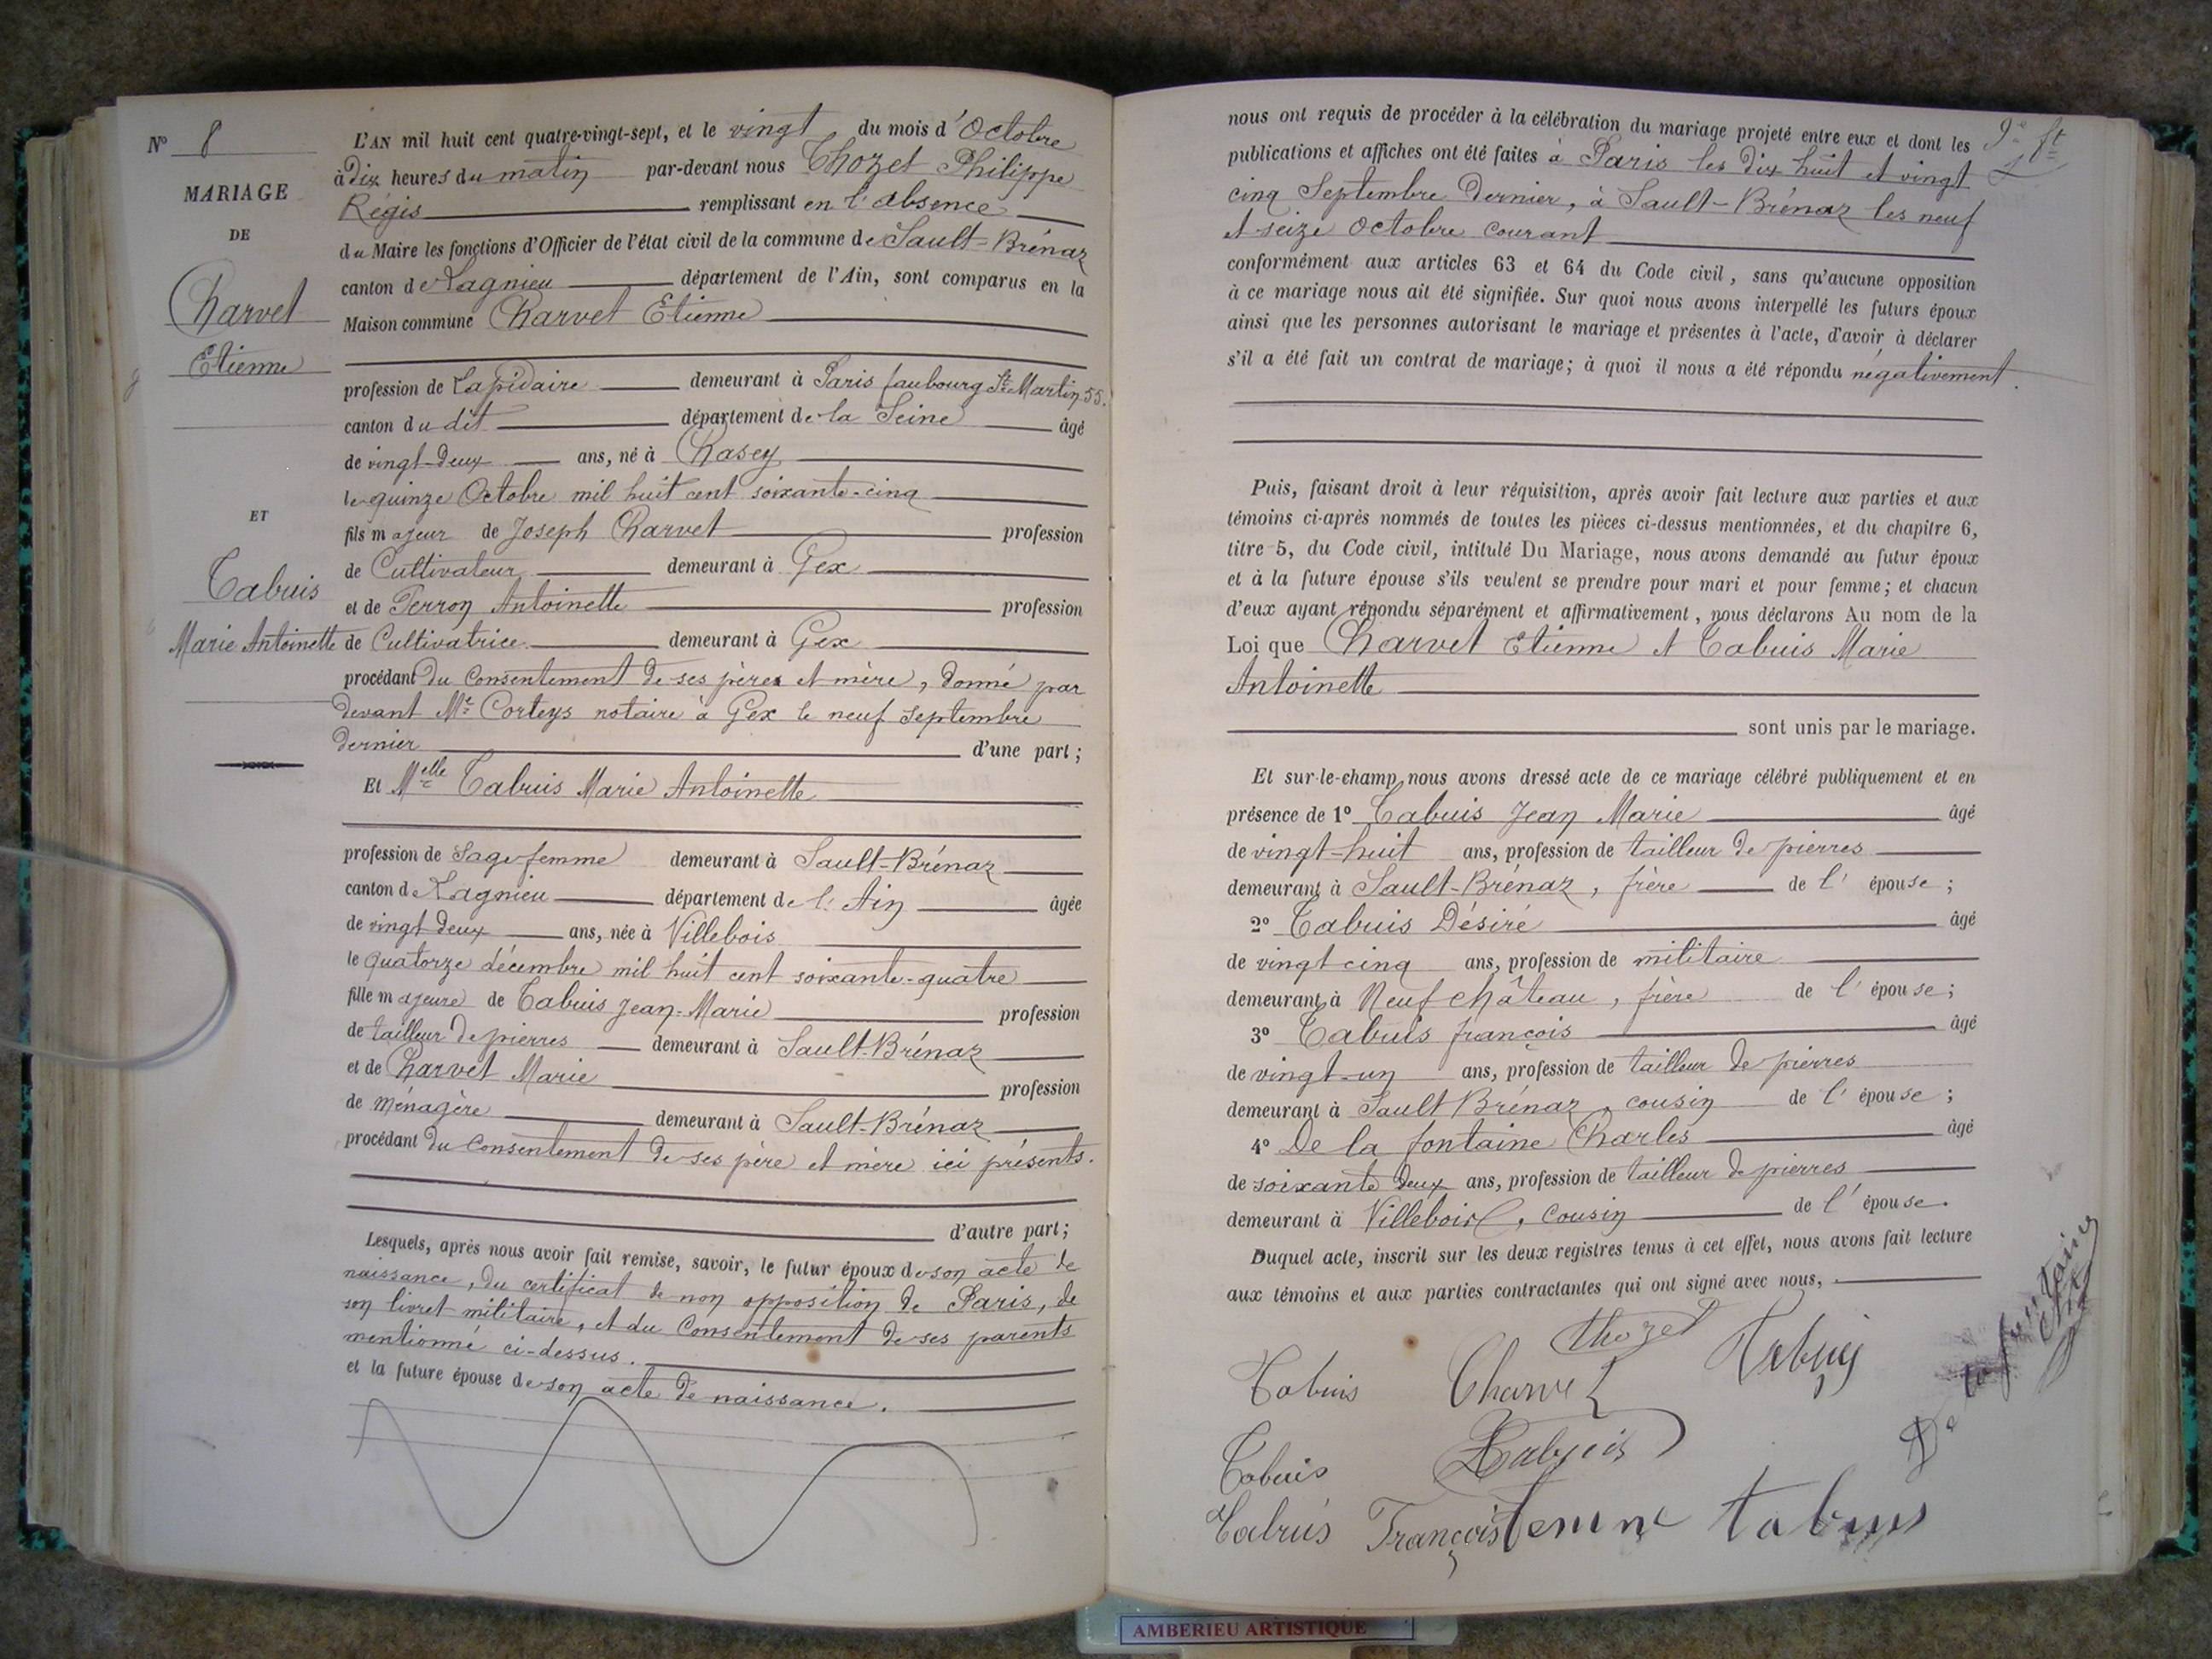 N° 8
MARIAGE
DE
Charvet
Etienne
ET
Tabuis
Marie Antoinette
L'AN mil huit cent quatre-vingt-sept, et le vingt du mois d'Octobre
à dix heures du matin par-devant nous Thozet Philippe
Régis remplissant en l'absence
du Maire les fonctions d'Officier de l'état civil de la commune de Sault-Brénaz
canton de Lagnieu département de l'Ain, sont comparus en la
Maison commune Charvet Etienne
profession de Lapidaire demeurant à Paris faubourg St Martin 55.
canton du dit département de la Seine âgé
de vingt-deux ans, né à Chasey
le quinze Octobre mil huit cent soixante-cinq
fils majeur de Joseph Charvet profession
de Cultivateur demeurant à Gex
et de Perron Antoinette profession
de Cultivatrice demeurant à Gex
procédant du consentement de ses pères et mère, donné par
devant Me Corteys notaire à Gex le neuf Septembre
dernier d'une part;
Et Melle Tabuis Marie Antoinette
profession de Sage-femme demeurant à Sault-Brénaz
canton de Lagnieu département de l'Ain âgée
de vingt deux ans, née à Villebois
le quatorze décembre mil huit cent soixante-quatre
fille majeure de Tabuis Jean-Marie profession
de tailleur de pierres demeurant à Sault-Brénaz
et de Charvet Marie profession
de ménagère demeurant à Sault-Brénaz
procédant du consentement de ses père et mère ici présents.
d'autre part;
Lesquels, après nous avoir fait remise, savoir, le futur époux de son acte de
naissance, du certificat de non opposition de Paris, de
son livret militaire, et du consentement de ses parents
mentionné ci-dessus.
et la future épouse de son acte de naissance.
nous ont requis de procéder à la célébration du mariage projeté entre eux et dont les
publications et affiches ont été faites à Paris les dix huit et vingt
cinq Septembre dernier, à Sault-Brénaz les neuf
et seize Octobre courant
conformément aux articles 63 et 64 du Code civil, sans qu'aucune opposition
à ce mariage nous ait été signifiée. Sur quoi nous avons interpellé les futurs époux
ainsi que les personnes autorisant le mariage et présentes à l'acte, d'avoir à déclarer
s'il a été fait un contrat de mariage; à quoi il nous a été répondu négativement.
Puis, faisant droit à leur réquisition, après avoir fait lecture aux parties et aux
témoins ci-après nommés de toutes les pièces ci-dessus mentionnées, et du chapitre 6,
titre 5, du Code civil, intitulé Du Mariage, nous avons demandé au futur époux
et à la future épouse s'ils veulent se prendre pour mari et pour femme; et chacun
d'eux ayant répondu séparément et affirmativement, nous déclarons Au nom de la
Loi que Charvet Etienne et Tabuis Marie
Antoinette
sont unis par le mariage.
Et sur-le-champ nous avons dressé acte de ce mariage célébré publiquement et en
présence de 1° Tabuis Jean Marie âgé
de vingt-huit ans, profession de tailleur de pierres
demeurant à Sault-Brénaz, frère de l'épouse;
2° Tabuis Désiré âgé
de vingt cinq ans, profession de militaire
demeurant à Neufchâteau, frère de l'épouse;
3° Tabuis françois âgé
de vingt-un ans, profession de tailleur de pierres
demeurant à Sault Brénaz, cousin de l'épouse;
4° De la fontaine Charles âgé
de soixante deux ans, profession de tailleur de pierres
demeurant à Villebois, cousin de l'épouse.
Duquel acte, inscrit sur les deux registres tenus à cet effet, nous avons fait lecture
aux témoins et aux parties contractantes qui ont signé avec nous,
thozet
Tabuis Charvet Tabuis
Tabuis Tabuis
Tabuis François femme tabuis
AMBERIEU ARTISTIQUE